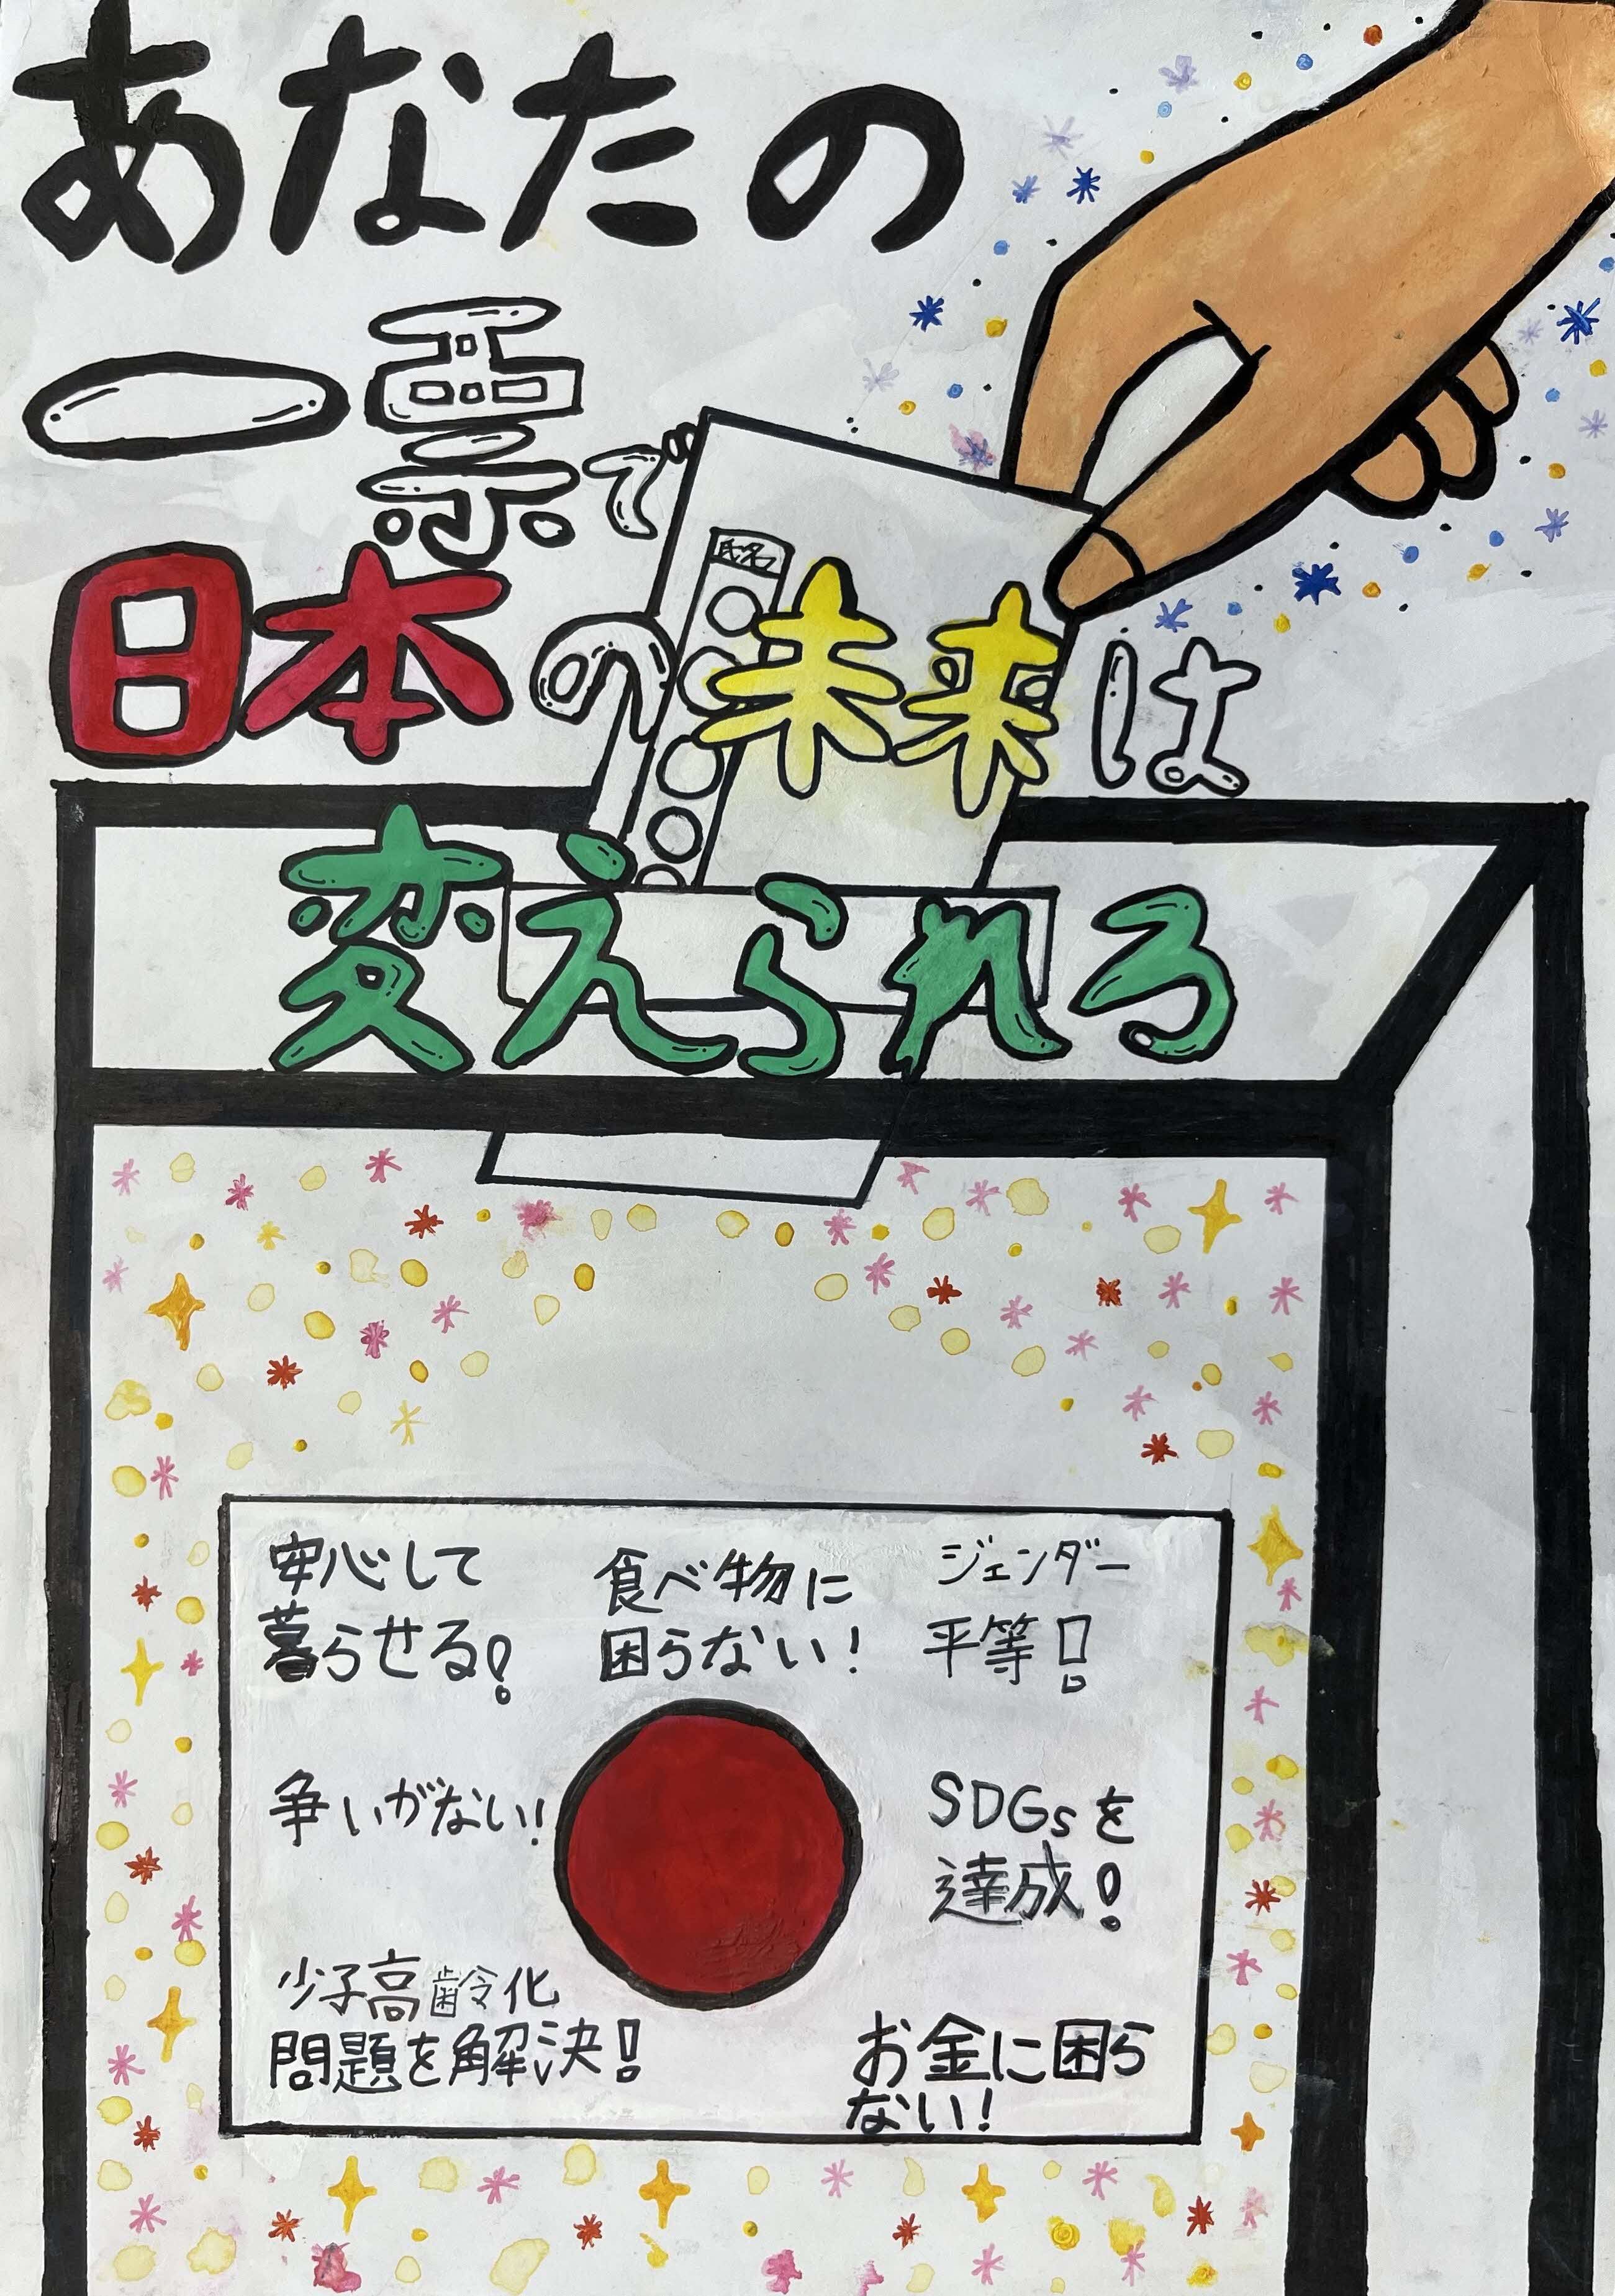 あなたの
一票で
氏名
日本の未来は
変えられろ
安心して
暮らせる!
食べ物に
困らない!
ジェンダー
平等!
争いがない!
SDGsを
達成!
少子高齢化
問題を解決!
お金に困ら
ない!